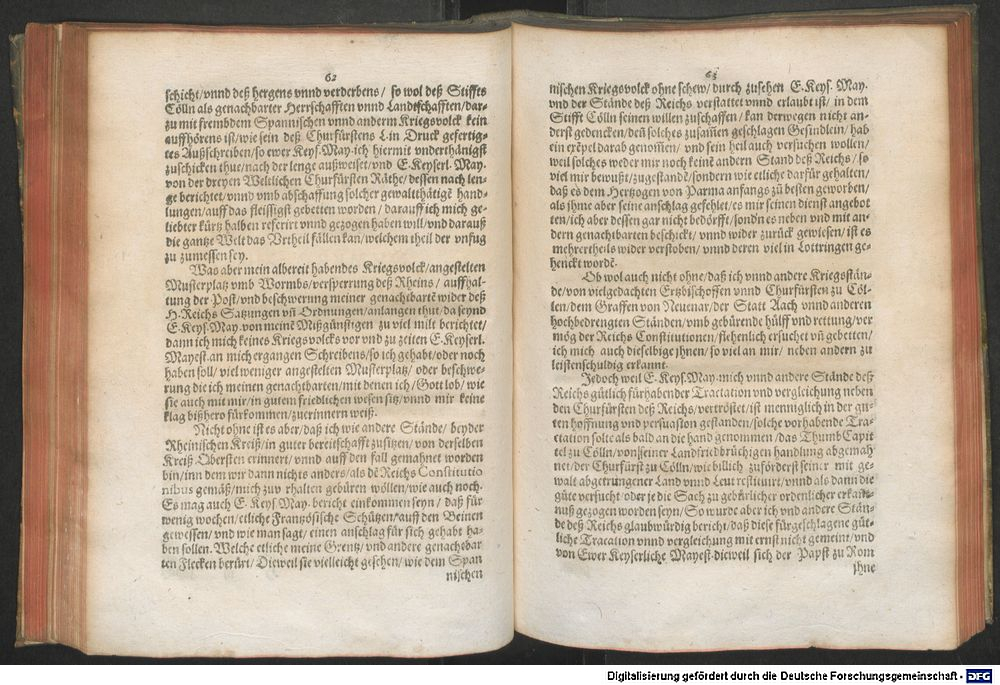 62
schicht/vnnd deß hergens vnnd verderbens/ so wol deß Stifftes
Cölln als genachbarter Herrschafften vnnd Landtschafften/dar-
zu mit frembdem Spannischen vnnd anderm Kriegsvolck kein
auffhörens ist/wie sein deß Churfürstens L.in Druck gefertig-
tes Außschreiben/so ewer Keys.May.ich hiermit vnderthänigst
zuschicken thue/nach der lenge außweiset/vnd E.Keyserl. May.
von der dreyen Weltlichen Churfürsten Räthe/dessen nach len-
ge berichtet/vnnd vmb abschaffung solcher gewaltthätigē hand-
lungen/auff das fleissigst gebetten worden/ darauff ich mich ge-
liebter kürtz halben referirt vnnd gezogen haben will/vnd darauß
die gantze Welt das Vrtheil fällen kan/welchem theil der vnfug
zu zumessen sey.
Was aber mein albereit habendes Kriegsvolck/angestelten
Musterplatz vmb Wormbs/versperrung deß Rheins/ auffhal-
tung der Post/vnd beschwerung meiner genachbartē wider deß
H.Reichs Satzungen vñ Ordnungen/anlangen thut/da seynd
E.Keys.May.von meinē Mißgünstigen zu viel milt berichtet/
dann ich mich keines Kriegsvolcks vor vnd zu zeiten E.Keyserl.
Mayest.an mich ergangen Schreibens/so ich gehabt/oder noch
haben soll/ viel weniger angestelten Musterplatz/ oder beschwe-
rung die ich meinen genachbarten/mit denen ich/Gott lob/ wie
sie auch mit mir/in gutem friedlichen wesen sitz/vnnd mir keine
klag bißhero fürkommen/zuerinnern weiß.
Nicht ohne ist es aber/daß ich wie andere Stände/ beyder
Rheinischen Kreiß/in guter bereitschafft zusitzen/von derselben
Kreiß Obersten erinnert/ vnnd auff den fall gemahnet worden
bin/inn dem wir dann nichts anders/als dē Reichs Constitutio
nibus gemäß/mich zuv rhalten gebüren wöllen/wie auch noch.
Es mag auch E. Keys May. bericht einkommen seyn/ daß für
wenig wochen/etliche Frantzösische Schützen/auff den Beinen
gewessen/vnd wie man sagt/ einen anschlag für sich gehabt ha-
ben sollen. Welche etliche meine Grentz/vnd andere genachbar
ten Flecken berürt/ Dieweil sie vielleicht gesehen/ wie dem Span
nischen
63
nischen Kriegsvolck ohne schew/durch zusehen E.Keys. May.
vnd der Stände deß Reichs verstattet vnnd erlaubt ist/ in dem
Stifft Cölln seinen willen zuschaffen/ kan derwegen nicht an-
derst gedencken/deñ solches zusam̃en geschlagen Gesindlein/ hab
ein exēpel darab genom̃en/ vnd sein heil auch versuchen wollen/
weil solches weder mir noch keinē andern Stand deß Reichs/ so
viel mir bewußt/zugestandē/sondern wie etliche darfür gehalten/
daß es dem Hertzogen von Parma anfangs zu besten geworben/
als jhme aber seine anschlag gefehlet/es mir seinen dienst angebot
ten/ich aber dessen gar nicht bedörfft/sondn es neben vnd mit an-
dern genachbarten beschickt/ vnnd wider zurück gewiesen/ ist es
mehrertheils wider verstoben/ vnnd deren viel in Lottringen ge-
henckt wordē.
Ob wol auch nicht ohne/daß ich vnnd andere Kriegsstän-
de/von vielgedachten Ertzbischoffen vnnd Churfürsten zu Cöl-
len/dem Graffen von Neuenar/der Statt Aach vnnd anderen
hochbedrengten Ständen/vmb gebürende hülff vnd rettung/ver
mög der Reichs Constitutionen/flehenlich ersuchet vñ gebetten/
ich mich auch dieselbige jhnen/so viel an mir/ neben andern zu
leisten schuldig erkannt.
Jedoch weil E.Keys.May.mich vnnd andere Stände deß
Reichs gütlich fürhabender Tractation vnd vergleichung neben
den Churfürsten deß Reichs/vertröstet/ist menniglich in der gu-
ten hoffnung vnd persuasion gestanden/solche vorhabende Tra-
ctation solte als bald an die hand genommen/das ThumbCapit
tel zu Cölln/von seiner Landfriedbrüchigen handlung abgemah
net/der Churfürst zu Cölln/wie billich zuförderst seiner mit ge-
walt abgetrungener Land vnnd Leut restituirt/vnnd als dann die
güte versucht/oder je die Sach zu gebürlicher ordenlicher erkant-
nuß gezogen worden seyn/So wurde aber ich vnd andere Stän-
de deß Reichs glaubwürdig bericht/daß diese fürgeschlagene güt-
liche Tracation vnnd vergleichung mit ernst nicht gemeint/vnd
von Ewer Keyserliche Mayest.dieweil sich der Papst zu Rom
jhne
Digitalisierung gefördert durch die Deutsche Forschungsgemeinschaft - DFG